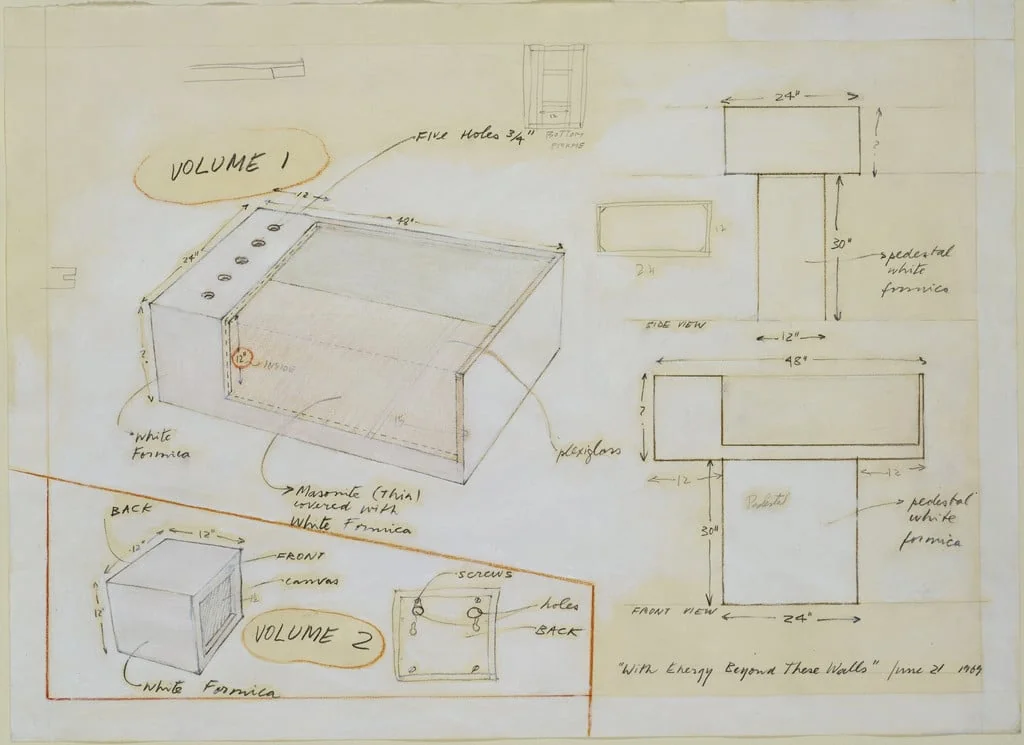 VOLUME 1
FIVE HOLES 3/4"
BOTTOM
24"
?
12
48"
24"
12
24
30"
pedestal
white
formica
SIDE VIEW
12"
12"
INSIDE
?
White
Formica
plexiglass
Masonite (Thin)
covered with
White Formica
48"
?
12
12
Pedestal
30"
pedestal
white
formica
FRONT VIEW
24"
BACK
12"
12"
FRONT
canvas
12"
VOLUME 2
White Formica
screws
holes
BACK
"With Energy Beyond These Walls" June 21 1969